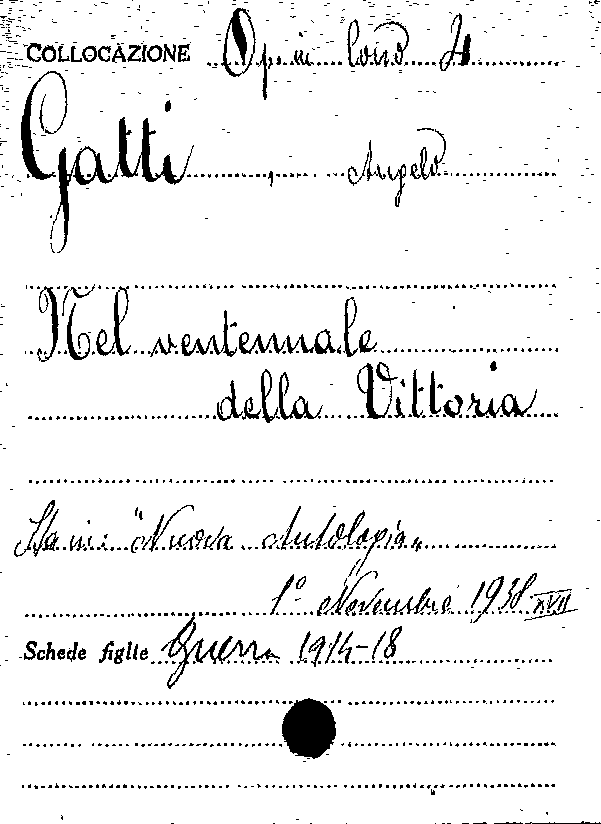 COLLOCAZIONE Op. in cons 4
Gatti, Angelo
Nel ventennale
della Vittoria
Sta in: "Nuova Antologia"
1° Novembre 1938 XVII
Schede figlie Guerra 1914-18